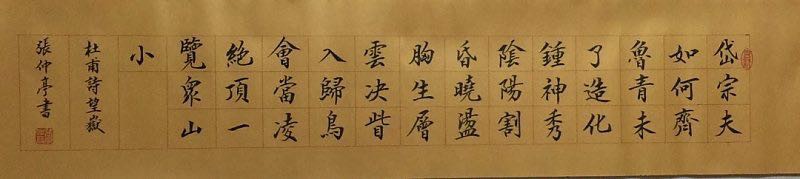 岱宗夫
如何齊
魯青未
了造化
鍾神秀
陰陽割
昏曉盪
胸生層
雲決眥
入歸鳥
會當凌
絕頂一
覽眾山
小
杜甫詩望嶽
張仲亭書